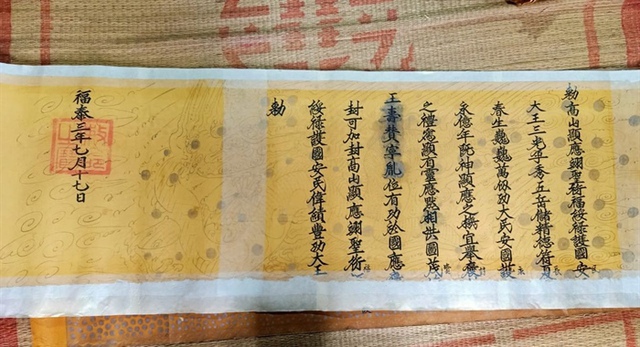 勅高山顯應翊聖衍福綏祿護國安
大王三光孕秀五岳儲精德符
春生巍巍萬仞功大民安國護
永億年神顯應之機宜舉褒
之禮顯有靈應默相洪圖茂
位有功於國應
封可加封高山顯應翊聖衍
綏祿護國安民偉績豐功大王
勅
福泰三年七月十七日